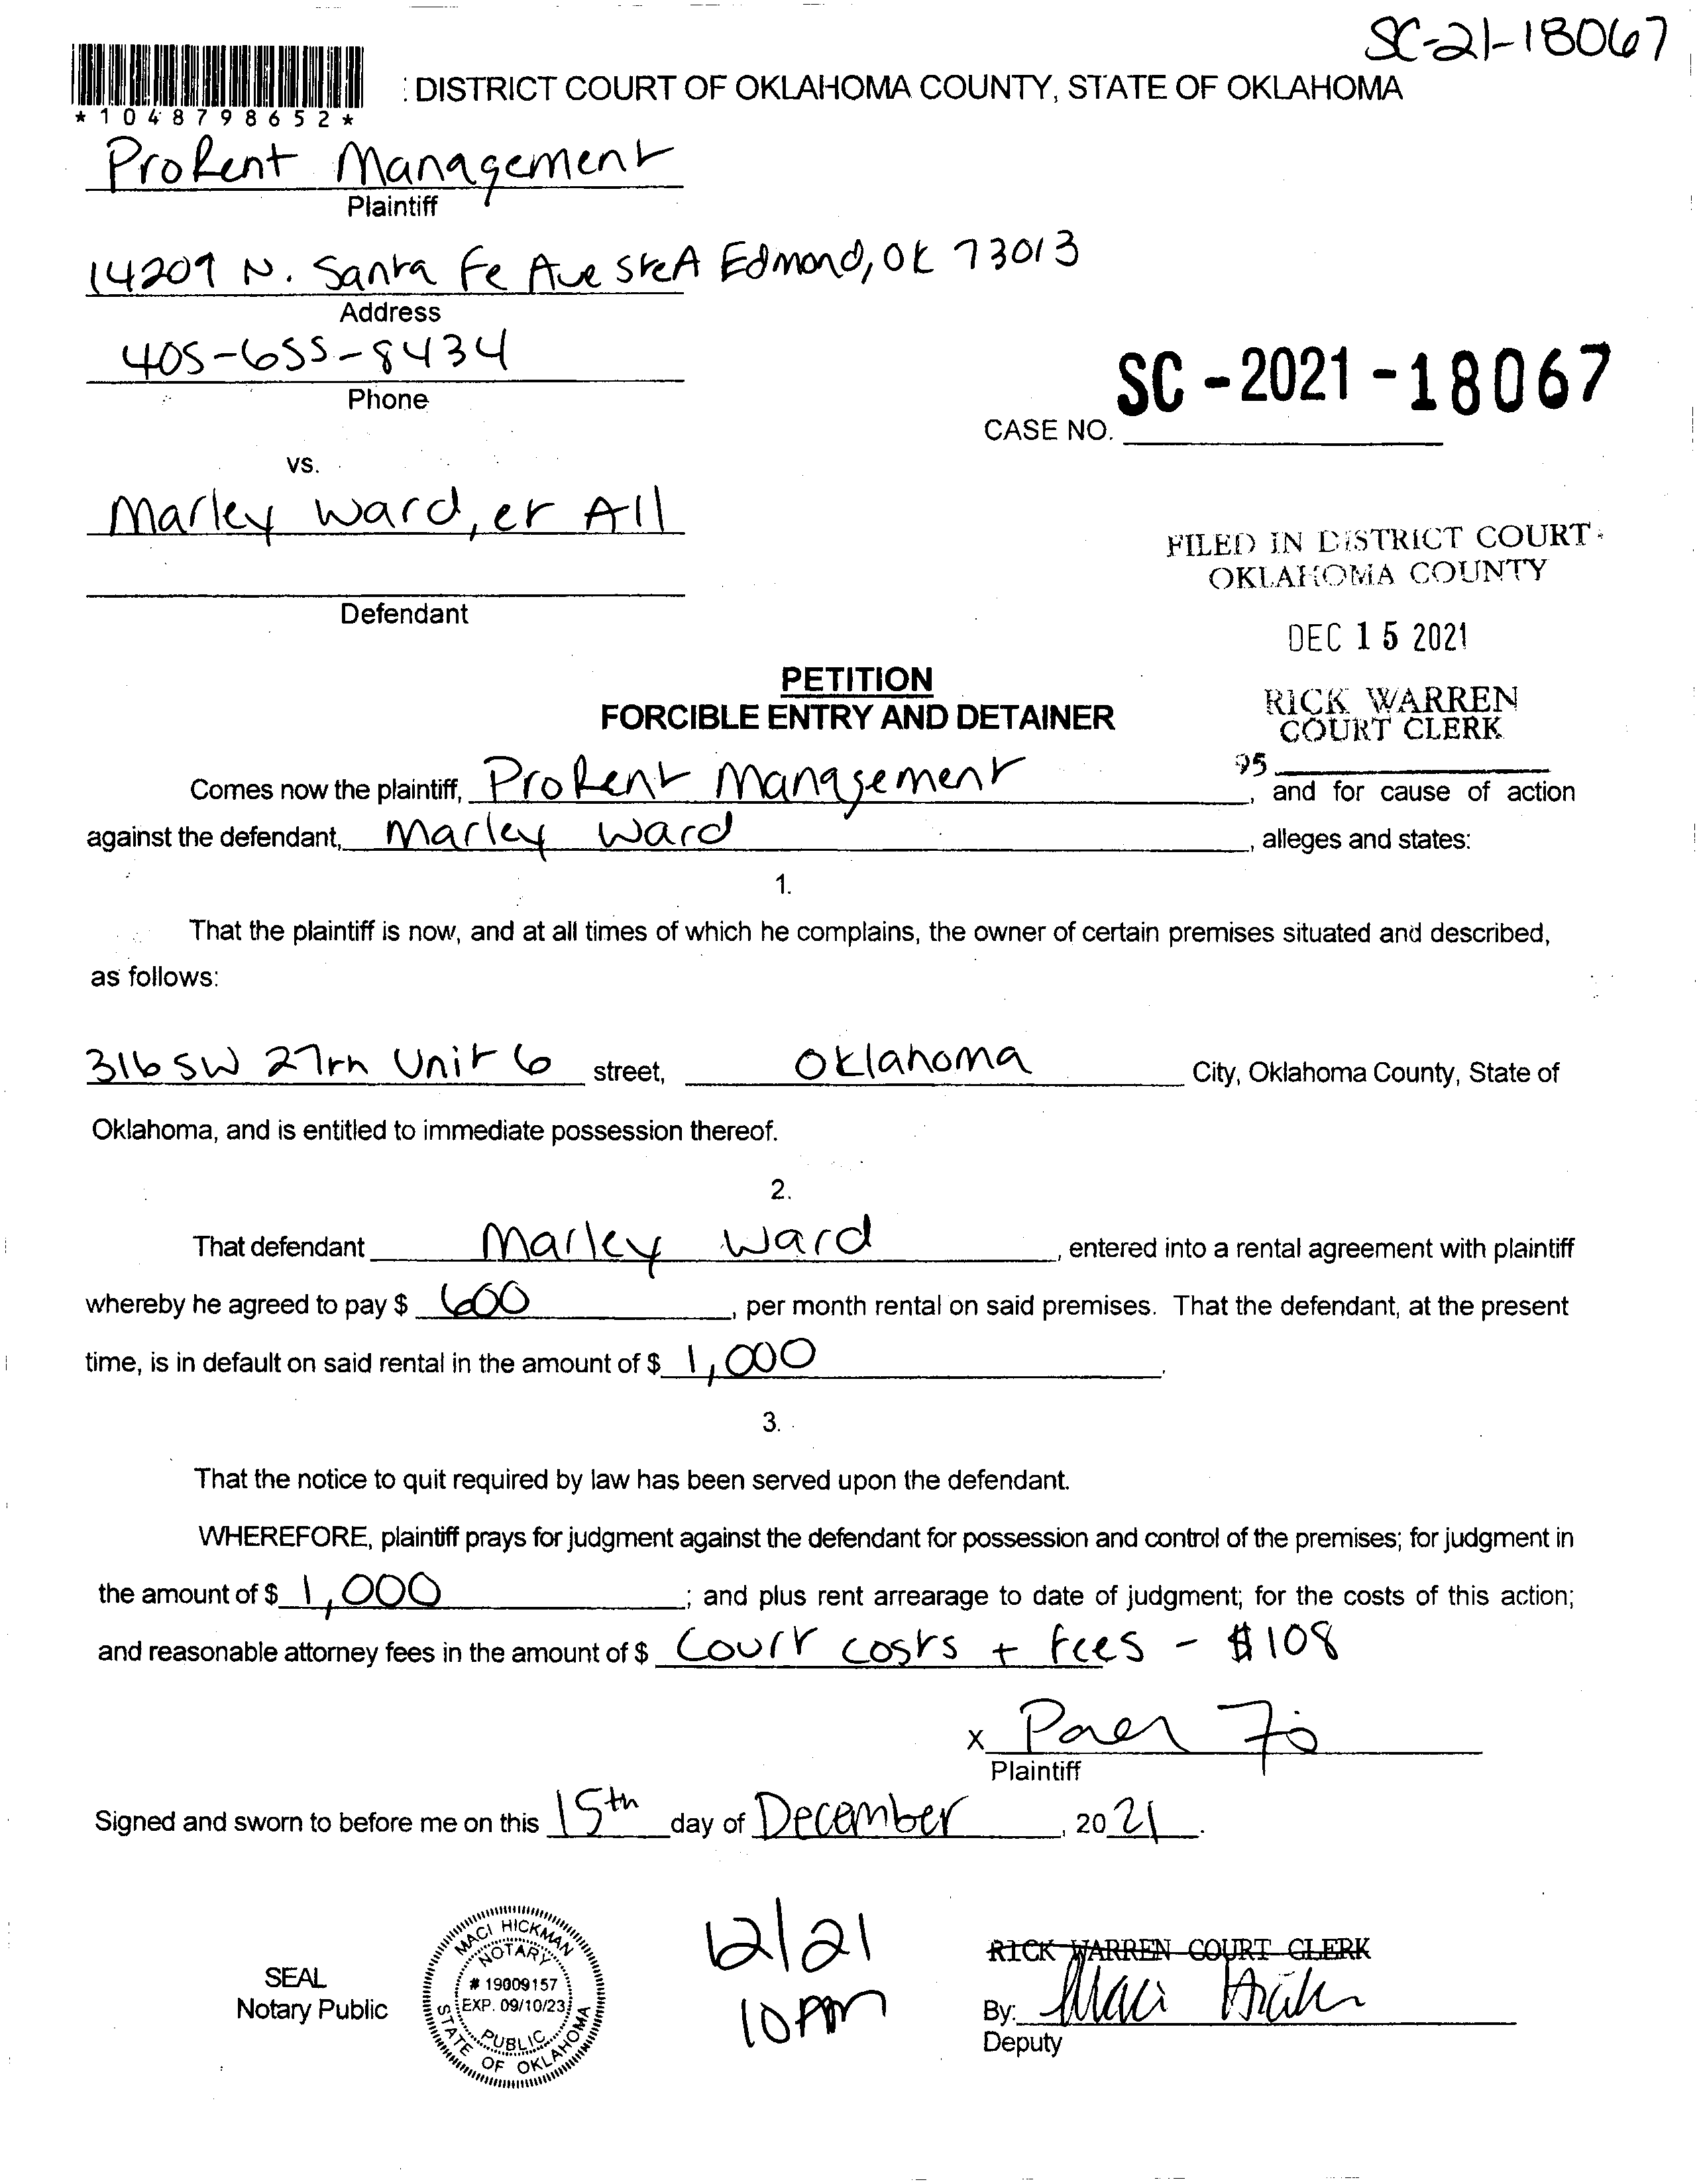 SC-21-18067
: DISTRICT COURT OF OKLAHOMA COUNTY, STATE OF OKLAHOMA
* 1 0 4 8 7 9 8 6 5 2 *
ProRent Management
Plaintiff
14209 N. Santa Fe Ave Ste A Edmond, OK 73013
Address
405-655-8434
Phone
SC - 2021 - 18067
CASE NO.
vs.
Marley Ward, et All
FILED IN DISTRICT COURT
OKLAHOMA COUNTY
Defendant
DEC 15 2021
PETITION
FORCIBLE ENTRY AND DETAINER
RICK WARREN
COURT CLERK
95
Comes now the plaintiff, ProRent Management, and for cause of action
against the defendant, Marley Ward, alleges and states:
1.
That the plaintiff is now, and at all times of which he complains, the owner of certain premises situated and described,
as follows:
316 SW 27th Unit 6 street, Oklahoma City, Oklahoma County, State of
Oklahoma, and is entitled to immediate possession thereof.
2.
That defendant Marley Ward, entered into a rental agreement with plaintiff
whereby he agreed to pay $ 600, per month rental on said premises. That the defendant, at the present
time, is in default on said rental in the amount of $ 1,000.
3.
That the notice to quit required by law has been served upon the defendant.
WHEREFORE, plaintiff prays for judgment against the defendant for possession and control of the premises; for judgment in
the amount of $ 1,000; and plus rent arrearage to date of judgment; for the costs of this action;
and reasonable attorney fees in the amount of $ Court costs + fees - $108
X
Plaintiff
Signed and sworn to before me on this 15th day of December, 2021.
SEAL
Notary Public
MACI HICKMAN
NOTARY
# 19009157
EXP. 09/10/23
PUBLIC
STATE OF OKLAHOMA
12/21
10 AM
RICK WARREN COURT CLERK
By: Maci Hickman
Deputy